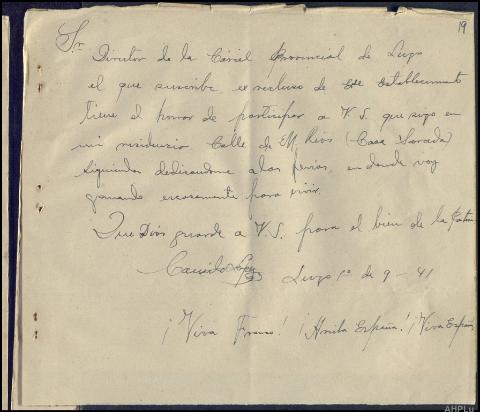 19
Sr. Director de la Cárcel Provincial de Lugo
el que suscribe ex recluso de ese establecimiento
tiene el honor de participar a V.S. que sigo en
mi residencia Calle de M. Rios (Casa
dedicandome a las ferias, en donde voy
ganando escasamente para vivir.
Que Dios guarde a V.S. para el bien de la Patria
Camilo López Lugo 1º de 9 - 41
¡Viva Franco! ¡Arriba España! ¡Viva España
AHPLu